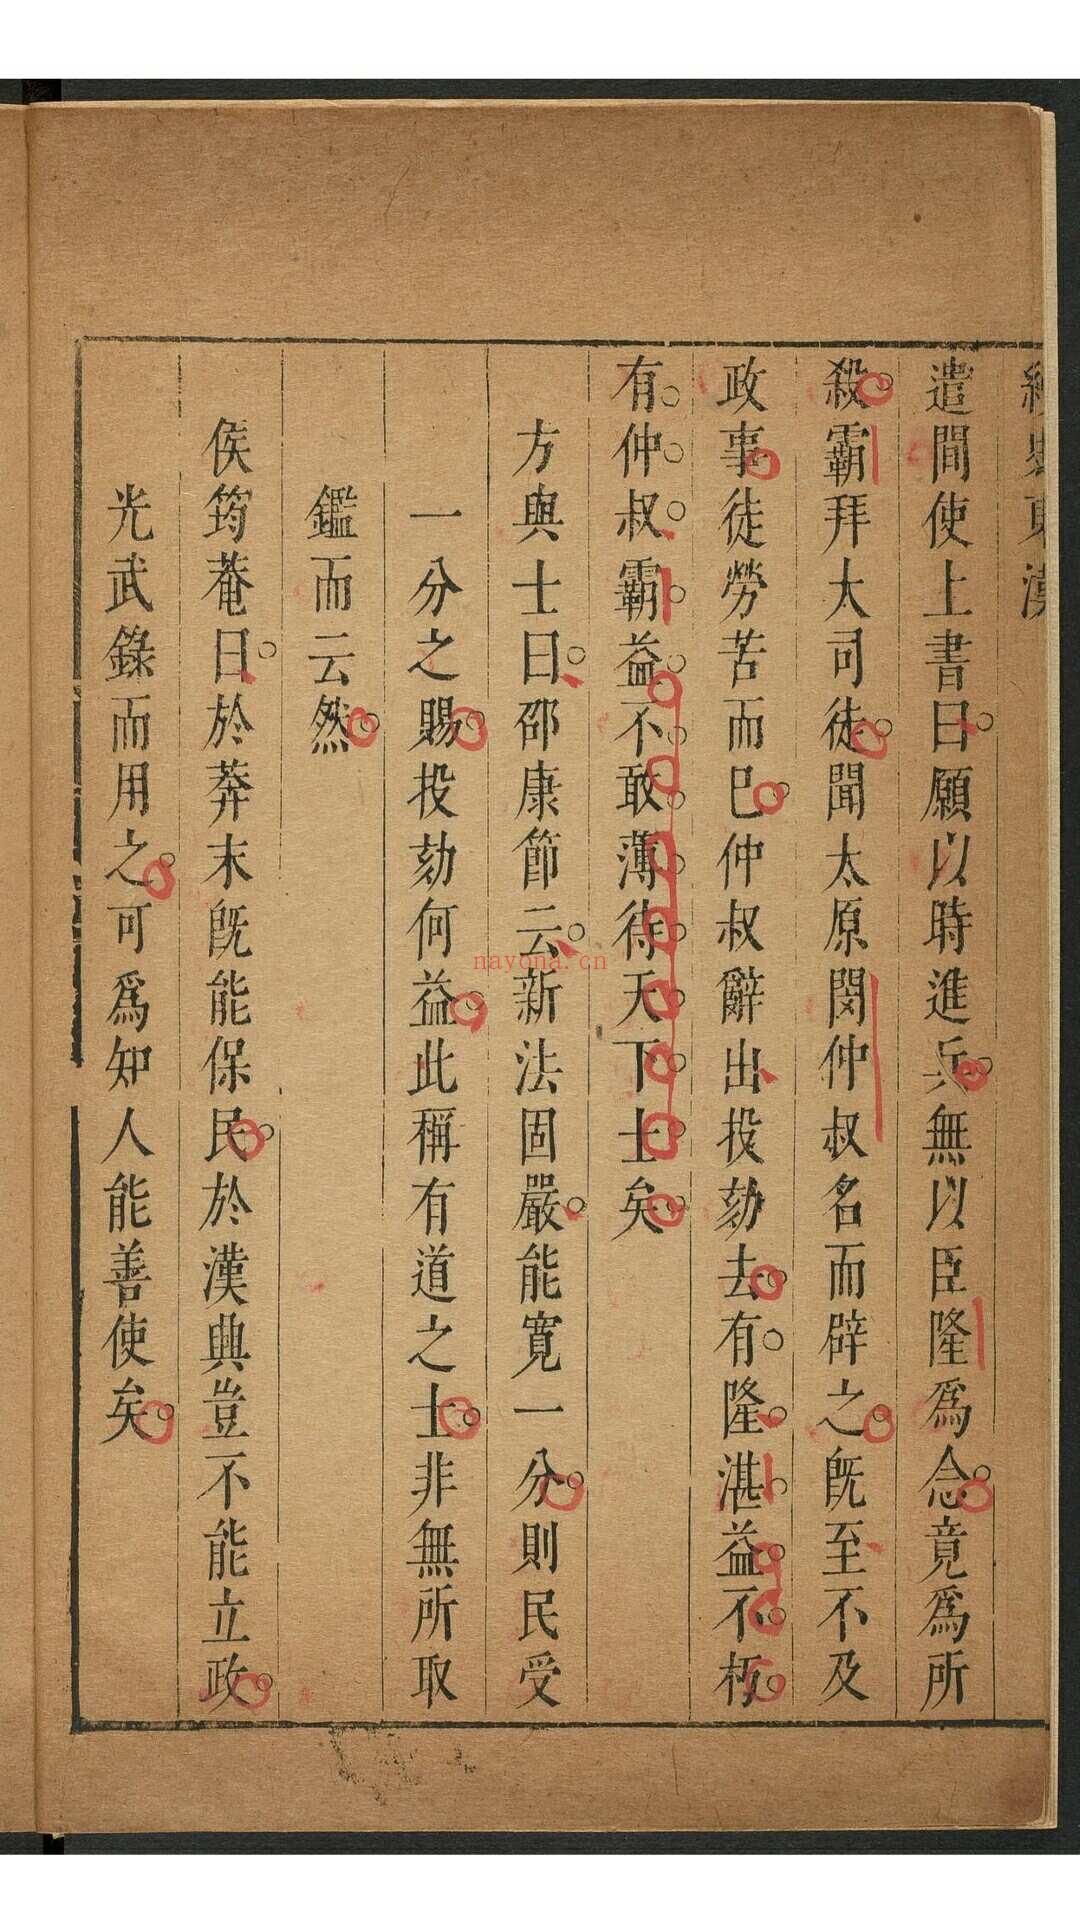 遣間使上書曰願以時進兵無以臣隆爲念竟爲所
殺霸拜大司徒聞太原閔仲叔名而辟之既至不及
政事徒勞苦而已仲叔辭出投劾去有隆湛益不朽
有仲叔霸益不敢薄待天下士矣
方與士曰邵康節云新法固嚴能寬一分則民受
一分之賜投劾何益此稱有道之士非無所取
鑑而云然
侯筠菴曰於莽末既能保民於漢興豈不能立政
光武錄而用之可爲知人能善使矣
nayona.cn